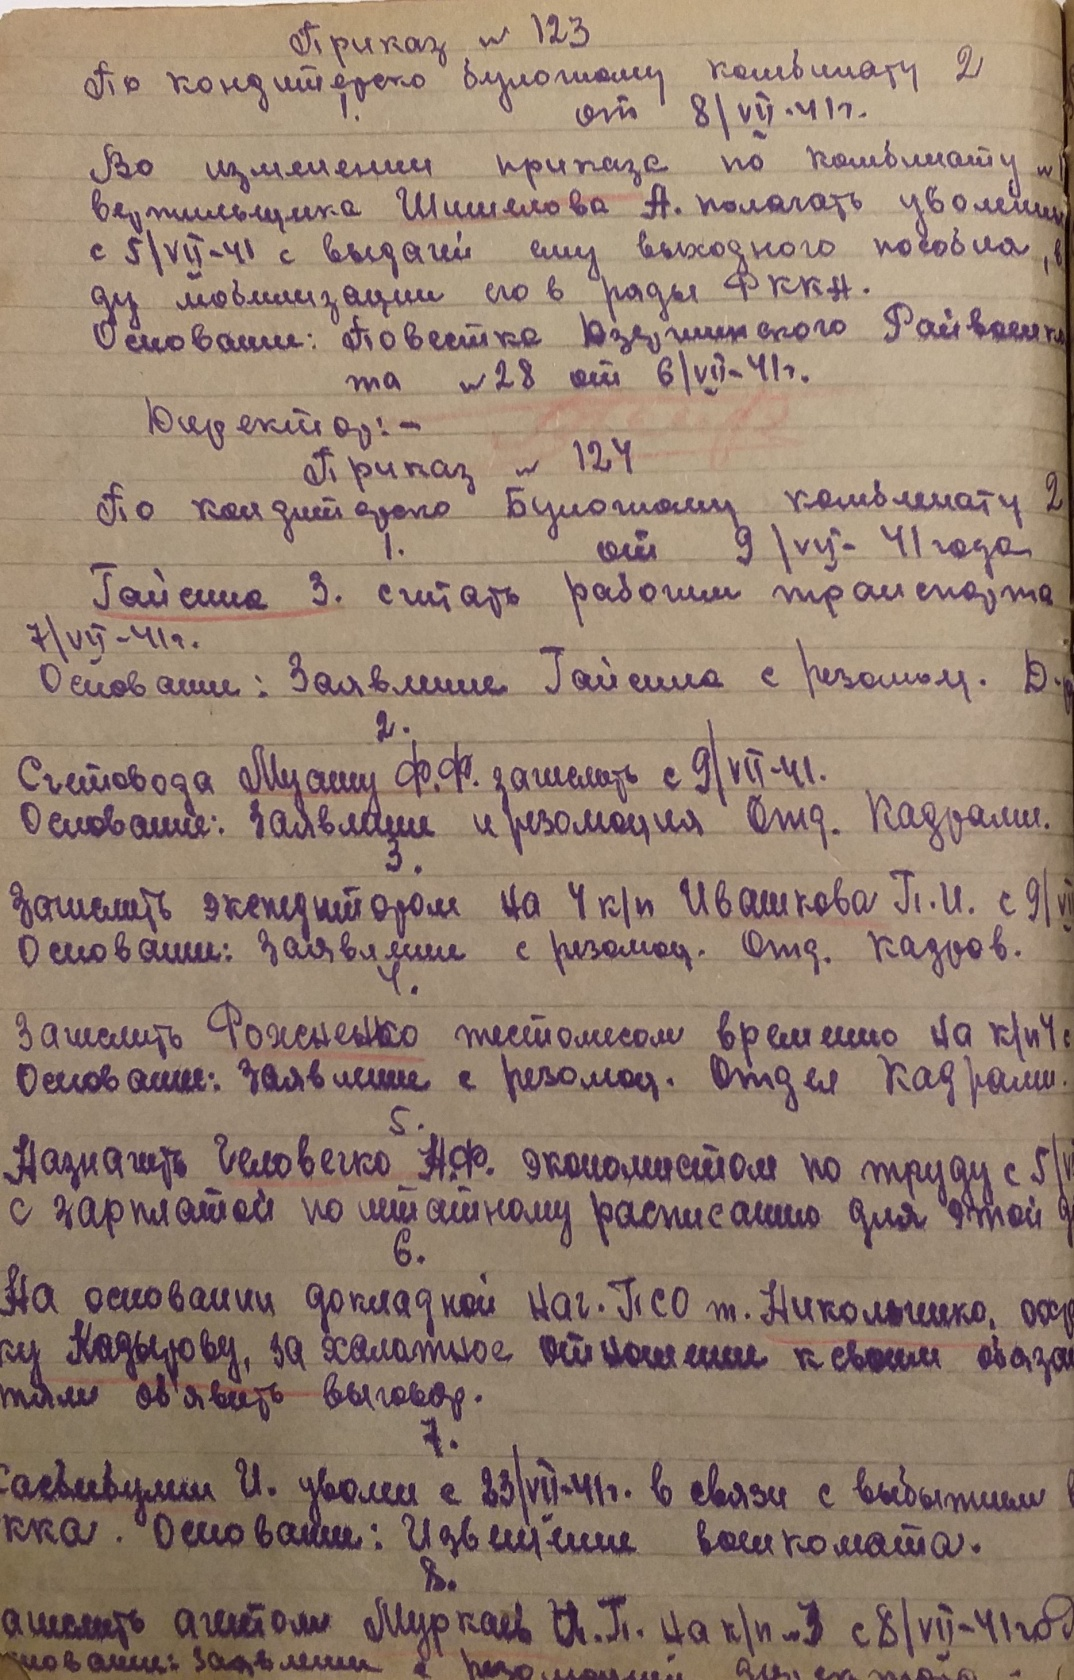 Приказ № 123
По кондитерско булочному комбинату 2
1. от 8/VII-41г.
Во изменении приказа по комбинату №
Шишелова А. полагать уволенным
с 5/VII-41 с выдачей ему выходного пособия, в
ду мобилизации его в ряды РККА.
Основание: Повестка Дзержинского Райвоенко
та №28 от 6/VII-41г.
Директор:-
Приказ № 124
По кондитерско Булочному комбинату 2
1. от 9/VII-41 года
Гайсина З. считать рабочим транспорта
7/VII-41г.
Основание: Заявление Гайсина с резолюц. Д-р
2.
Счетовода Музашу Ф.Ф. зачислить с 9/VII-41.
Основание: Заявление и резолюция Отд. Кадрами.
3.
Зачислить экспедитором на 4 к/п Ивашкова П.И. с 9/VII
Основание: Заявление с резолюц. Отд. кадров.
4.
Зачислить Роженко временно на к/п 4 с
Основание: Заявление с резолюц. Отдел Кадрами.
5.
Назначить Человечко Н.Ф. экономистом по труду с 5/VII
с зарплатой по штатному расписанию для этой д
6.
На основании докладной нач. ПСО т. Николаенко, охр
ку Кадырову, за халатное отношение к своим обязан
тям об'явить выговор.
7.
И. уволить с 23/VII-41г. в связи с выбытием в
кка. Основание: Извещение военкомата.
8.
ачислить агентом Муркаев И.П. на к/п №3 с 8/VII-41 год
нование: Заявление с резолюцией директора